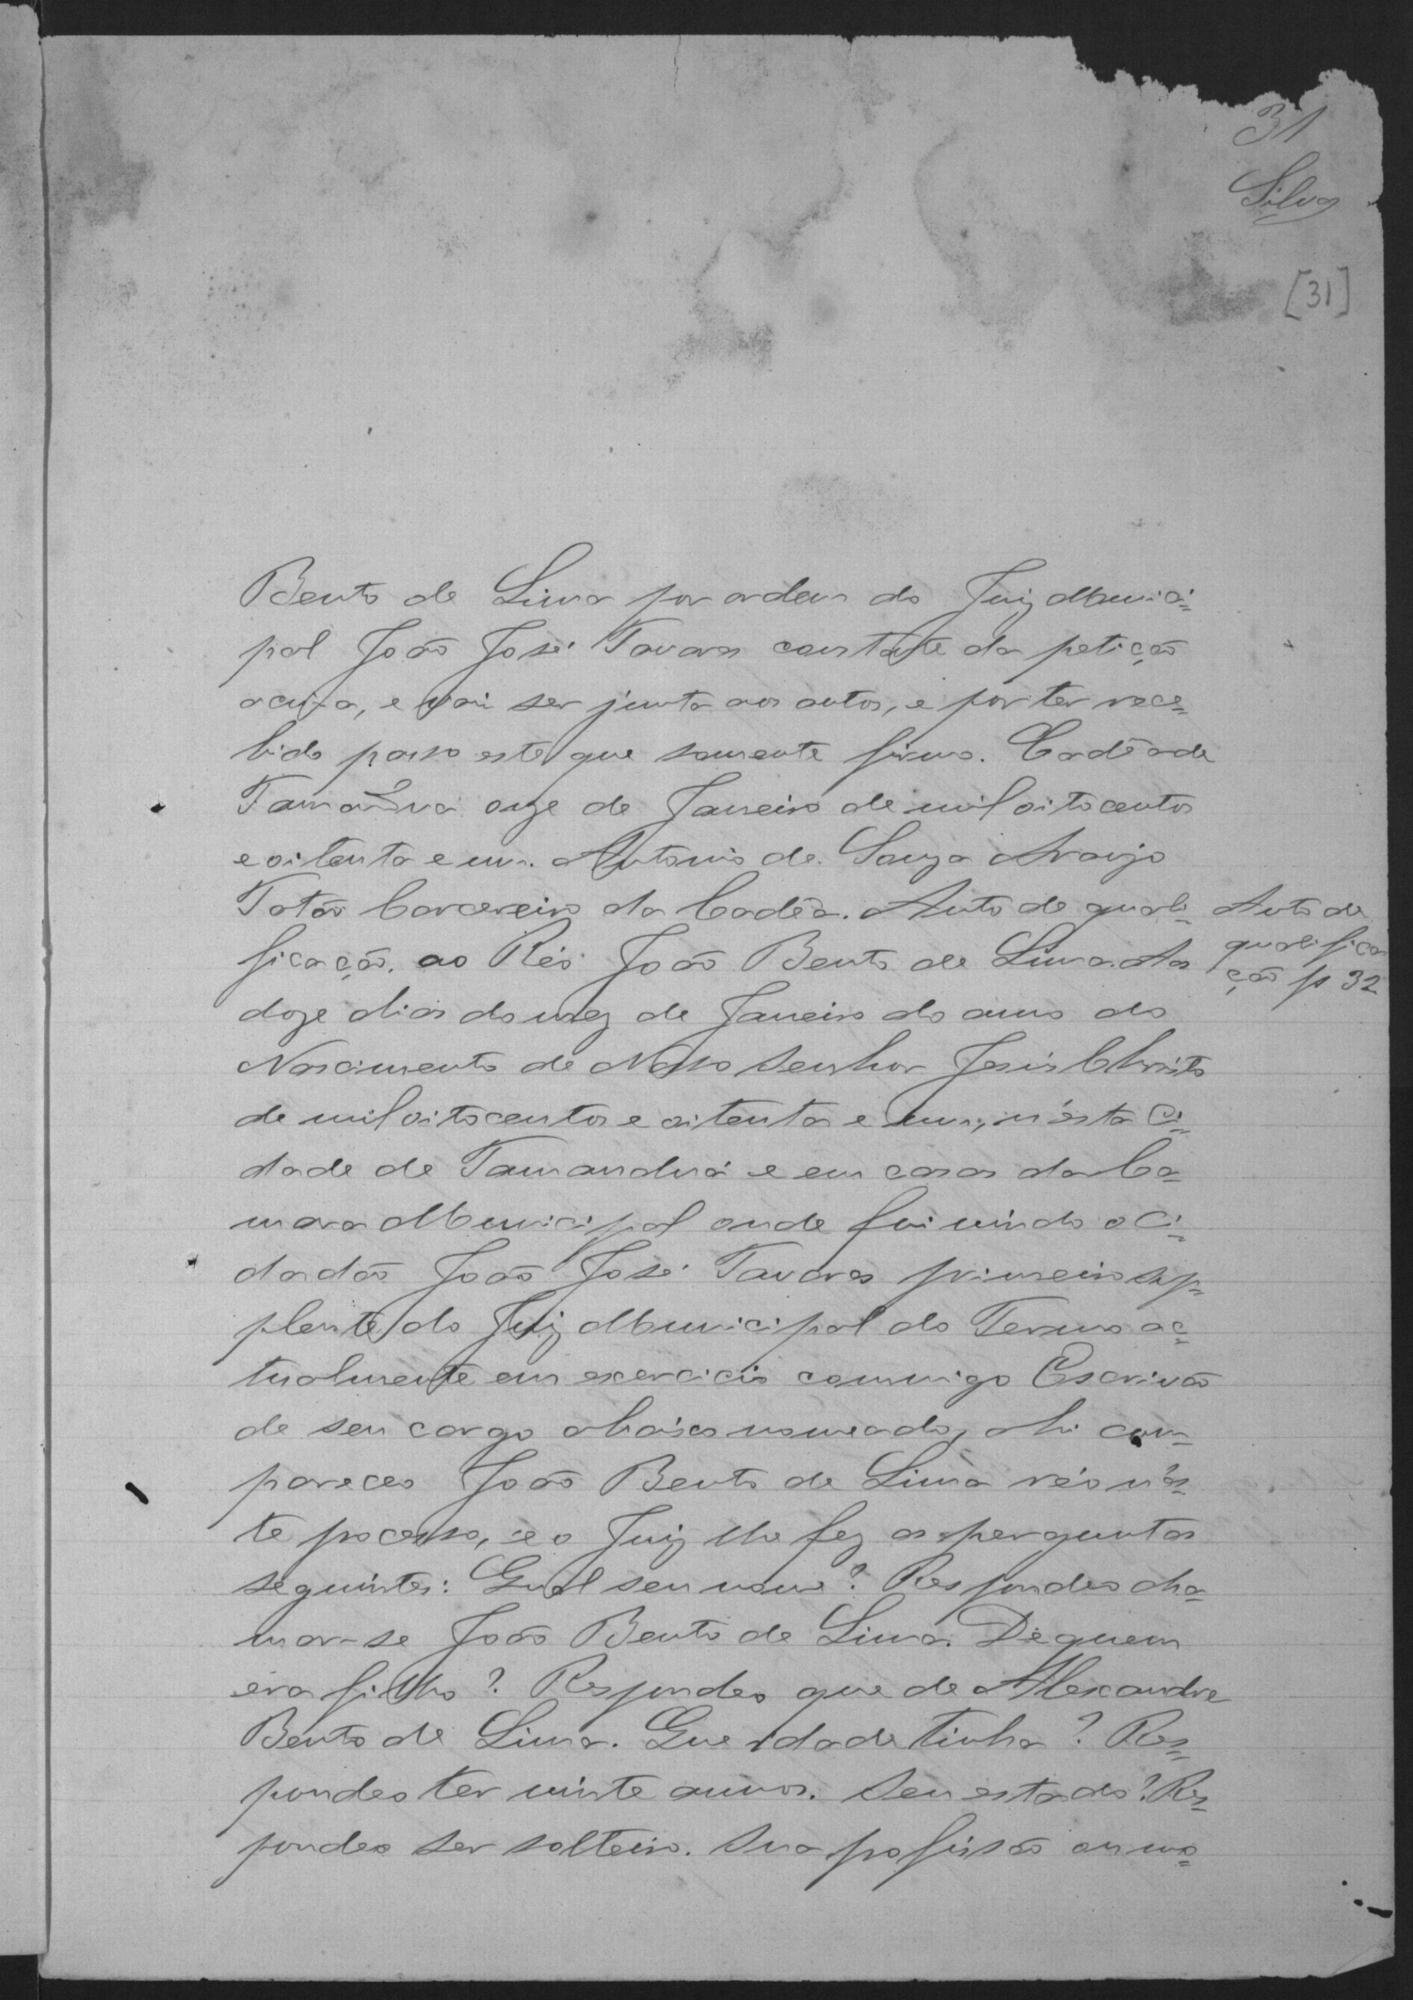 31
Silva
[31]
Bento de Lima por ordem do Juiz Munici-
pal João José Tavares constante da petição
acima, e vai ser junta aos autos, e por ter rece-
bido passo este que somente firmo. Cadêa de
Tamanduá onze de Janeiro de mil oitocentos
e oitenta e um. Antonio de Souza Araujo
Totão Carcereiro da Cadêa. Auto de quali-
ficação. ao Réo João Bento de Lima. Aos
Auto de
qualifica
ção p 32
doze dias do mez de Janeiro do anno do
Nascimento de Nosso Senhor Jesus Christo
de mil oitocentos e oitenta e um, n'esta Ci-
dade de Tamanduá e em casas da Ca-
mara Municipal onde fui vindo o Ci-
dadão João José Tavares primeiro sup-
plente do Juiz Municipal do Termo ac-
tualmente em exercicio commigo Escrivão
de seu cargo abaixo nomeado, ahi com-
pareceo João Bento de Lima réo n'es-
te pocesso, e o Juiz lhe fez as perguntas
seguintes: Qual seu nome? Respondeo cha-
mar-se João Bento de Lima. De quem
era filho? Respondeo que de Alexandre
Bento de Lima. Que idade tinha? Res-
pondeo ter vinte annos. Seu estado? Res-
pondeo ser solteiro. Sua pofissão ou mo-